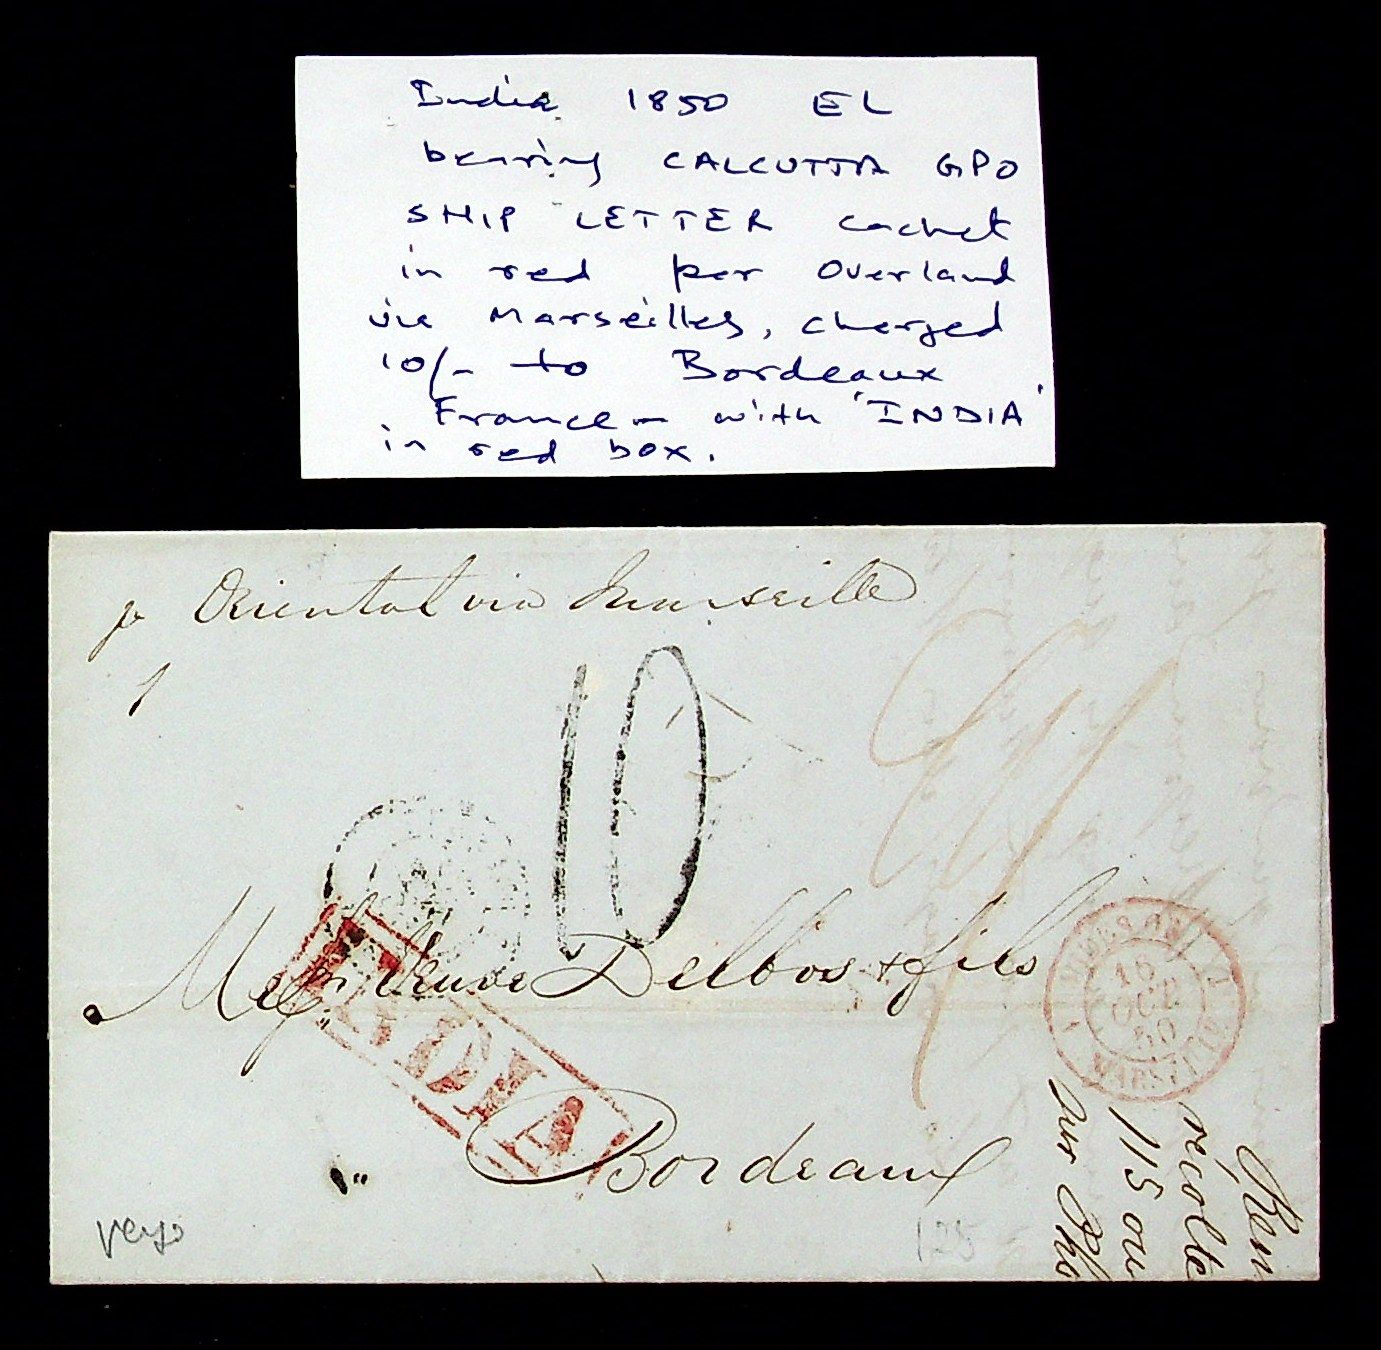 India 1850 EL
bearing CALCUTTA GPO
SHIP LETTER cachet
in red per Overland
via Marseilles, charged
10/- to Bordeaux
France - with 'INDIA'
in red box.
pr Oriental via Marseille
1
10
Delbos & fils
INDIA
16
OCT
50
MARSEILLE
Bordeaux
récolte
115 ou
verso
125